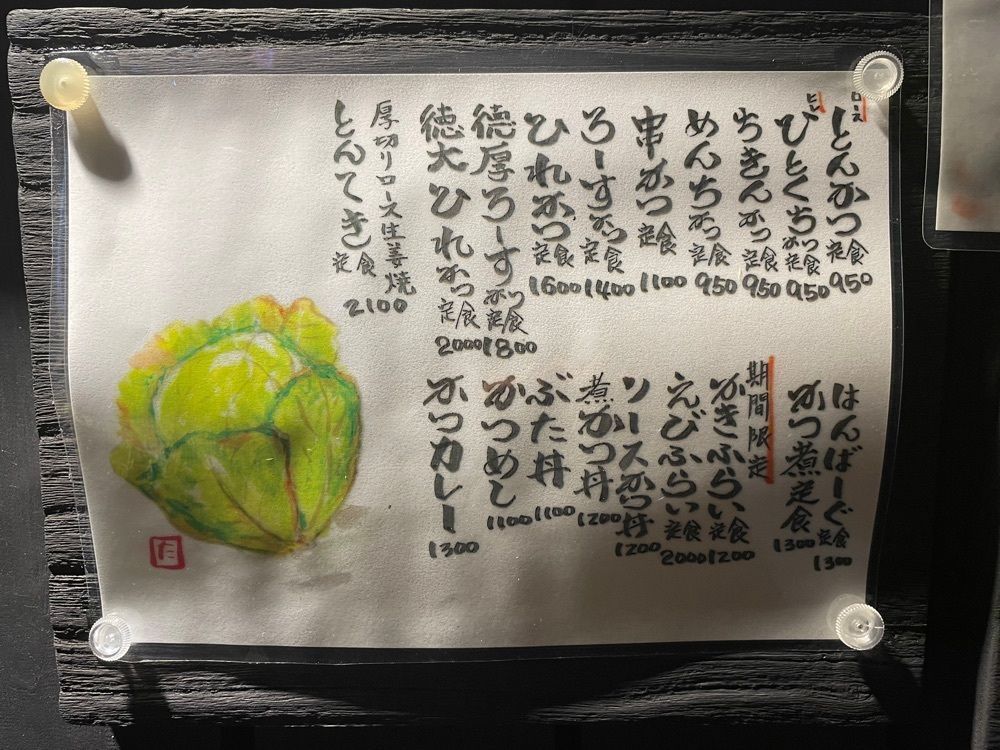 ロース
とんかつ定食 950
ヒレ
ひとくちかつ定食 950
ちきんかつ定食 950
めんちかつ定食 950
串かつ定食 1100
ろーすかつ定食 1400
ひれかつ定食 1600
徳厚ろーすかつ定食 1800
徳大ひれかつ定食 2000
厚切りロース生姜焼
とんてき定食 2100
はんばーぐ定食 1300
かつ煮定食 1300
期間限定
かきふらい定食 1200
えびふらい定食 2000
ソースかつ丼 1200
煮かつ丼 1200
ぶた丼 1100
かつめし 1100
かつカレー 1300
た